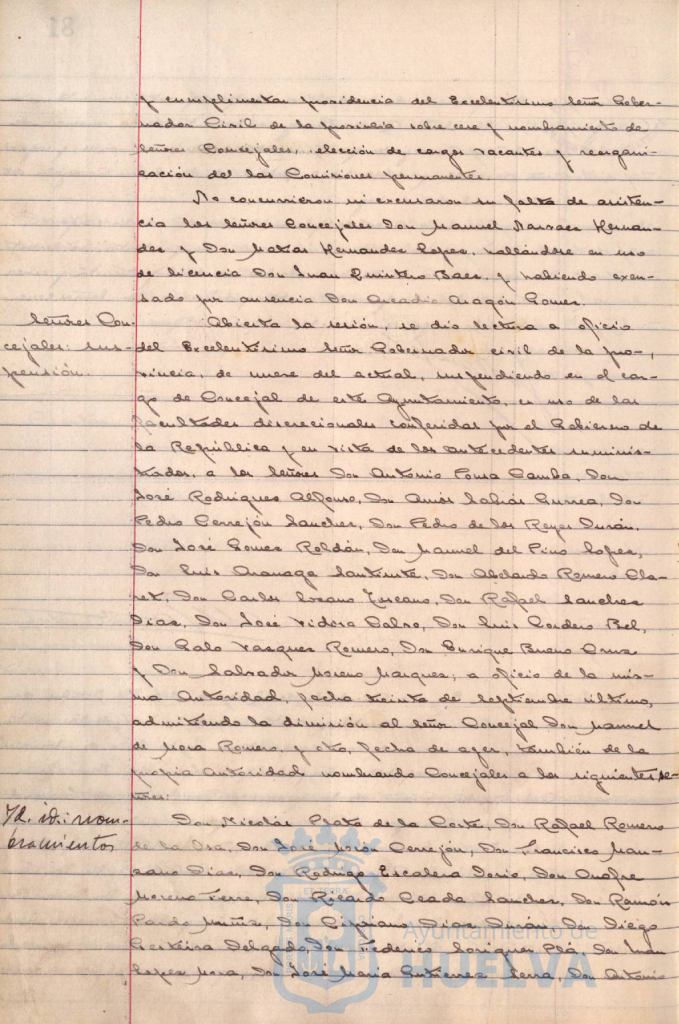 y cumplimentar providencia del Excelentísimo Señor Gober-
nador Civil de la provincia sobre cese y nombramiento de
Señores Concejales, elección de cargos vacantes y reorgani-
zación del las Comisiones permanentes.
No concurrieron ni excusaron su falta de asisten-
cia los Señores Concejales Don Manuel Narvaez Hernan-
dez y Don Matias Hernandez Lopez, hallándose en uso
de licencia Don Juan Quintero Baez, y habiendo excu-
sado por ausencia Don Arcadio Aragón Gomez.
Señores Con-
cejales: sus-
pensión.
Abierta la sesión, se dio lectura a oficio
del Excelentísimo Señor Gobernador civil de la pro-
vincia, de nueve del actual, suspendiendo en el car-
go de Concejal de este Ayuntamiento, en uso de las
facultades discrecionales conferidas por el Gobierno de
la República y en vista de los antecedentes suminis-
trados, a los Señores Don Antonio Ponsa Camba, Don
José Rodriguez Alfonso, Don Amós Sabrás Gurrea, Don
Pedro Cerrejón Sanchez, Don Pedro de los Reyes Durán,
Don José Gomez Roldán, Don Manuel del Pino Lopez,
Don Luis Don Abelardo Romero Cla-
ret, Don Carlos Lozano Toscano, Don Rafael Sanchez
Diaz, Don José Vidosa Calvo, Don Luis Cordero Bel,
Don Galo Vazquez Romero, Don Enrique Bueno Cruz
y Don Salvador Moreno Marquez; a oficio de la mis-
ma Autoridad, fecha treinta de septiembre último,
admitiendo la dimisión al señor Concejal Don Manuel
de Mora Romero, y otro, fecha de ayer, también de la
propia Autoridad nombrando Concejales a los siguientes se-
ñores:
Id. id: nom-
bramientos
Don Nicolás Prata de la Corte, Don Rafael Romero
de la Osa, Don José Morón Cerrejón, Don Francisco Man-
zano Diaz, Don Rodrigo Escalera Dorio, Don Onofre
Moreno Ferre, Don Ricardo Sanchez, Don Ramón
Pardo Muñiz, Don Cipriano Diaz Durán, Don Diego
Delgado, Don Federico Soriguer Plá, Don Juan
Lopez Mora, Don José María Gutierrez Serra, Don Antonio
Ayuntamiento de
HUELVA